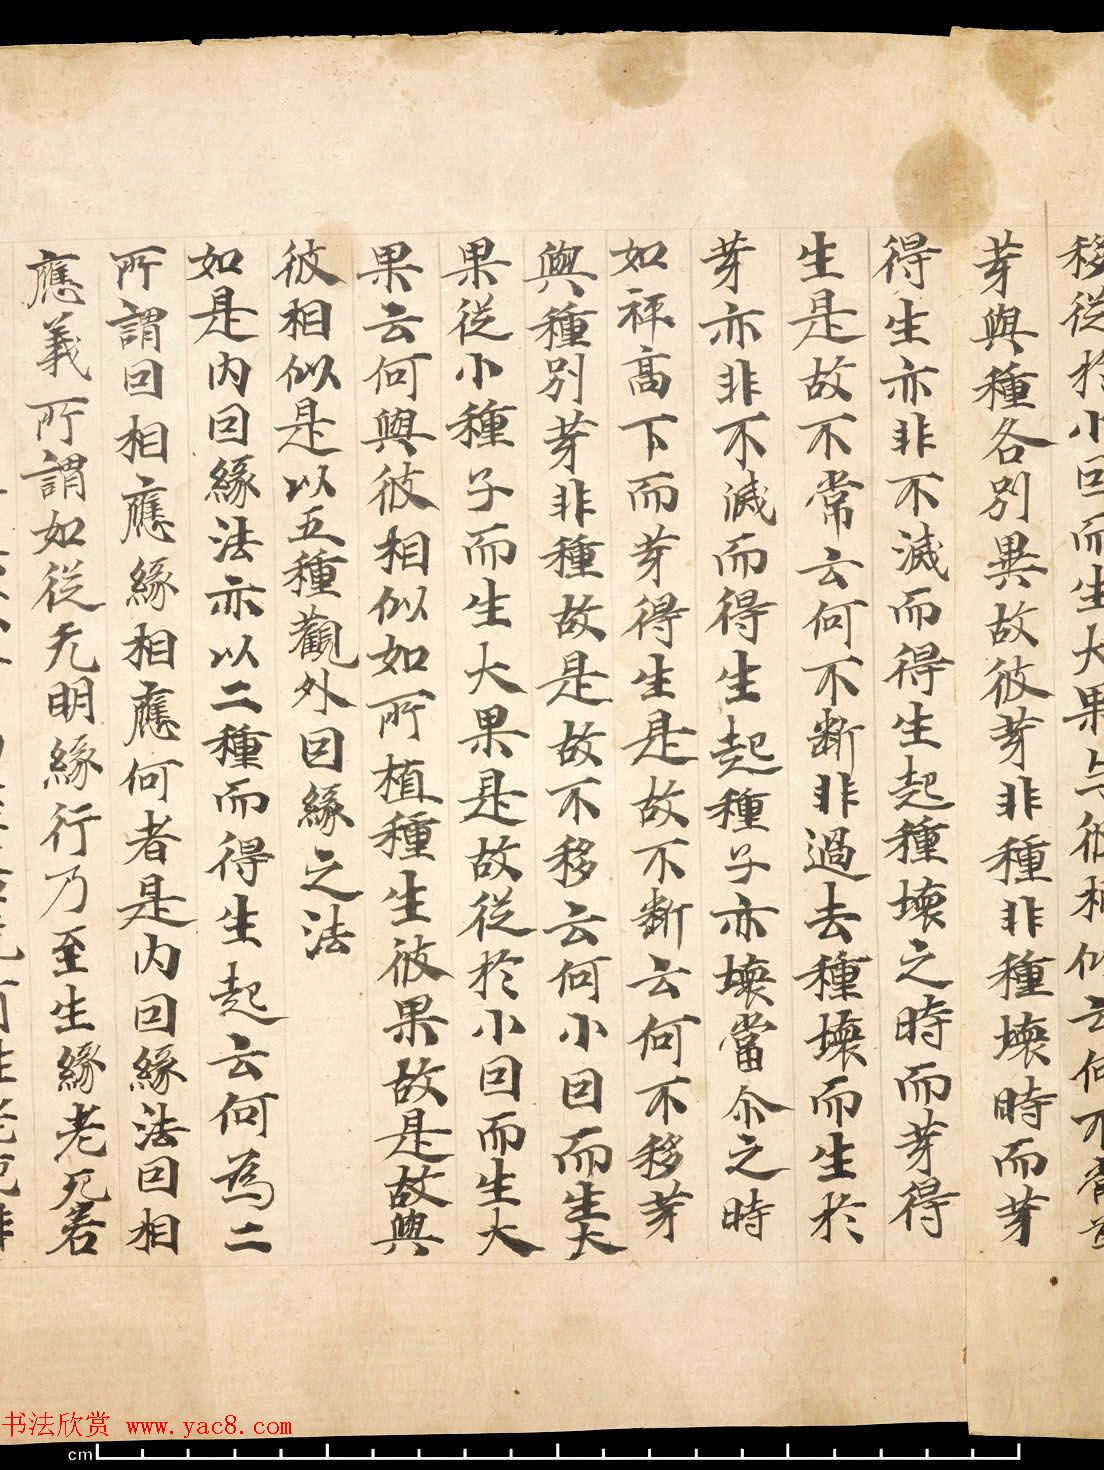 移從於小因而生大果与彼相似云何不常為
芽與種各別異故彼芽非種非種壞時而芽
得生亦非不滅而得生起種壞之時而芽得
生是故不常云何不斷非過去種壞而生於
芽亦非不滅而得生起種子亦壞當尒之時
如秤高下而芽得生是故不斷云何不移芽
與種別芽非種故是故不移云何小因而生大
果從小種子而生大果是故從於小因而生大
果云何與彼相似如所植種生彼果故是故與
彼相似是以五種觀外因緣之法
如是内因緣法亦以二種而得生起云何為二
所謂因相應緣相應何者是内因緣法因相
應義所謂如從无明緣行乃至生緣老死若
书法欣赏 www.yac8.com
cm